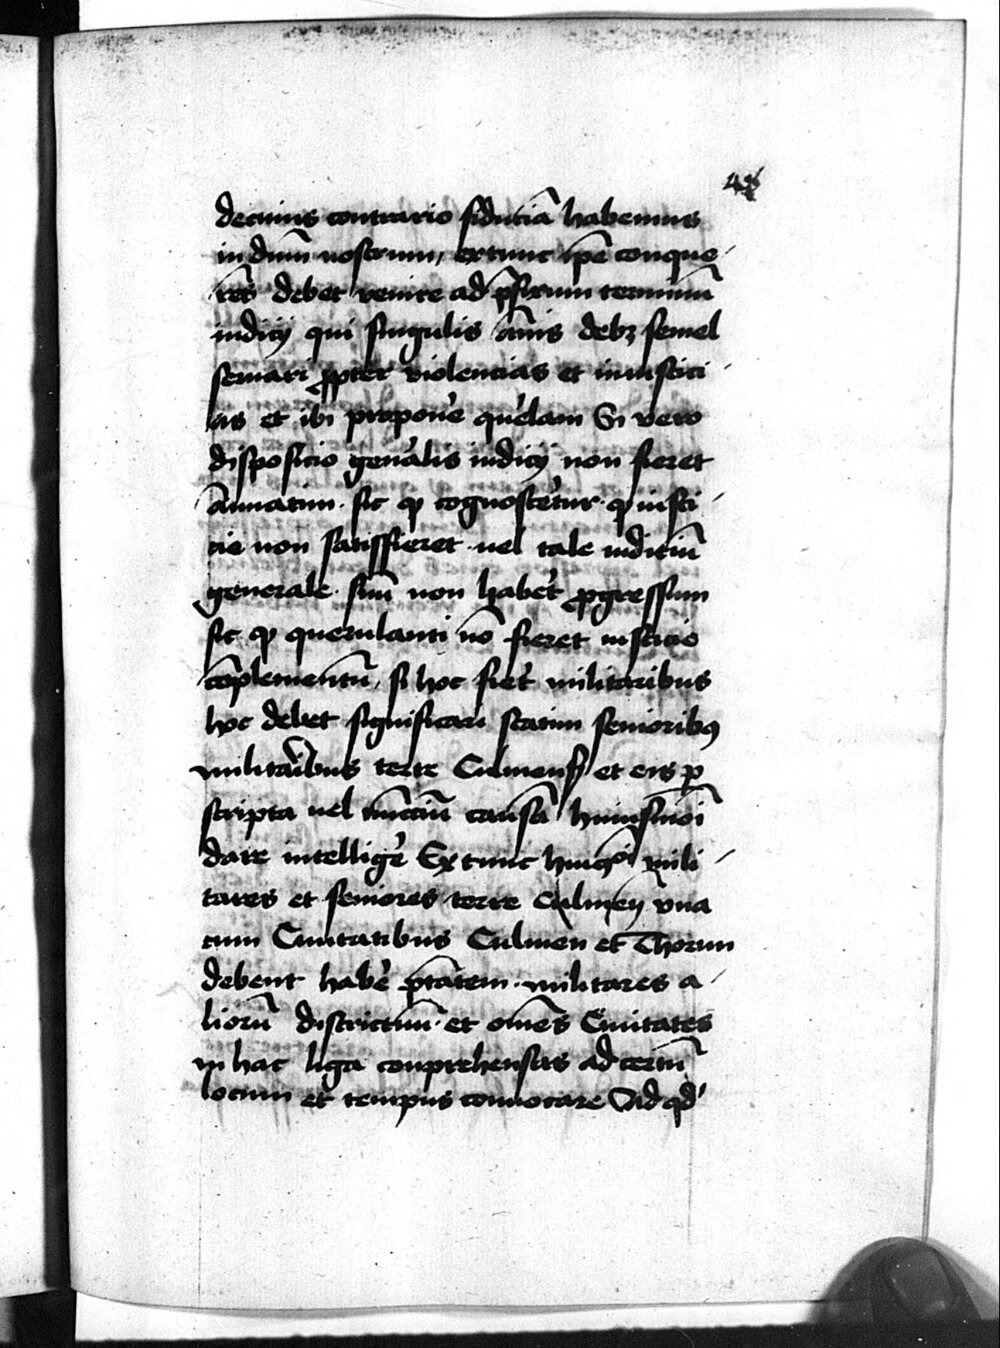 48
decuius contrario fiduciā habemus
in dnm̄ nostrum, extunc ip̄e conque-
rēs debet venire ad p̄fixum terminū
iudicij qui singulis ānis debꝫ semel
seruari ꝓpter violencias et iniustici-
as et ibi propone͛ que͛lam Si vero
disposicio gene͛alis iudicij non fieret
Annuatim. sic ꝙ cognosce͛tur. ꝙ iusti-
cie non satisffieret vel tale iudiciū
generale suū non habe͛t ꝓgressum
sic ꝙ querulanti nō fieret iusticie
cōplementū, si hoc fie͛t militaribus
hoc debet significari statim seniorib9
militaribus terre Culmens̄ et eis ꝑ
scripta vel nūcciū causā huiusmōi
dare intellige͛ Extunc hui9mōi mili-
tares et seniores terre Culmen̄ vna
cum Ciuitatibus Culmen et Thorun
debent habe͛ ptātem militares a-
liorū districtuū et om̄es Ciuitates
in hac liga comprehensas ad certū
locum et tempus conuocare Ad qd͛